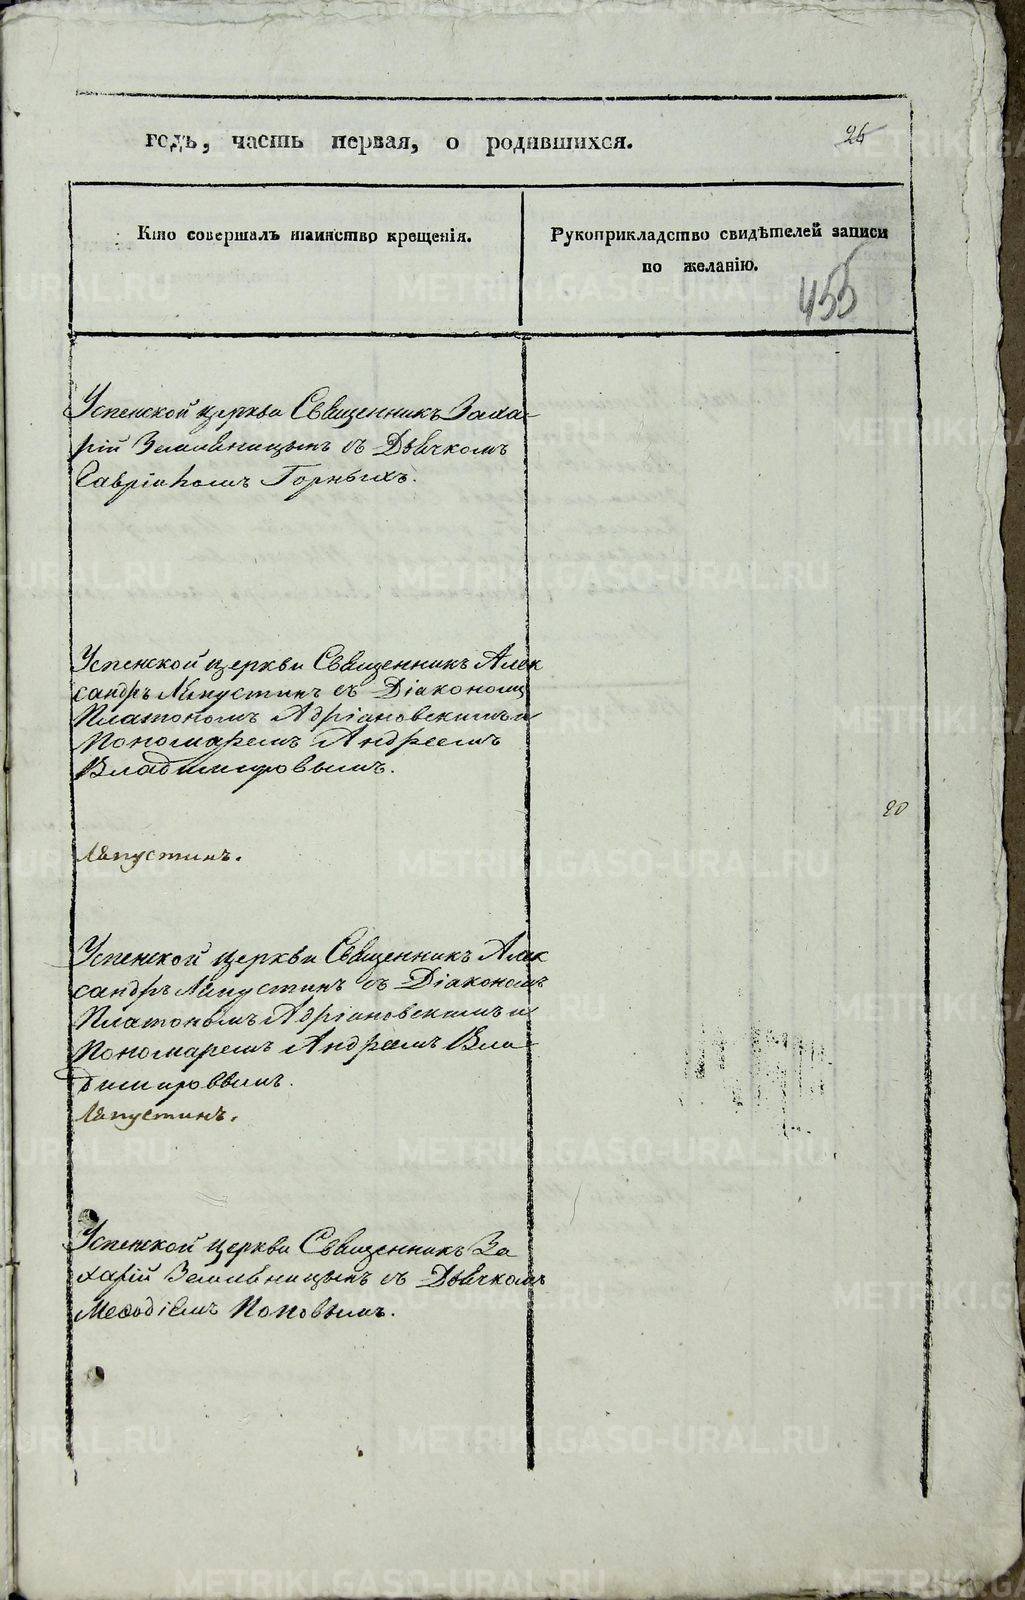 годъ, часть первая, о родившихся.
26
Кто совершалъ таинство крещенія.
Рукоприкладство свидѣтелей записи
по желанію.
455
Успенской церкви Священникъ Заха-
рій Земляницынъ съ Дьячкомъ
Гавріиломъ Горныхъ.
Успенской церкви Священникъ Алек
сандръ Ляпустинъ съ Діакономъ
Платономъ Адріановскимъ и
Пономаремъ Андреемъ
Владимировымъ.
20
Ляпустинъ.
Успенской церкви Священникъ Алек
сандръ Ляпустинъ съ Діакономъ
Платономъ Адріановскимъ и
Пономаремъ Андреемъ Вла-
димировымъ.
Ляпустинъ.
Успенской церкви Священникъ За
харій Земляницынъ съ Дьячкомъ
Меѳодіемъ Поповымъ.
METRIKI.GASO-URAL.RU